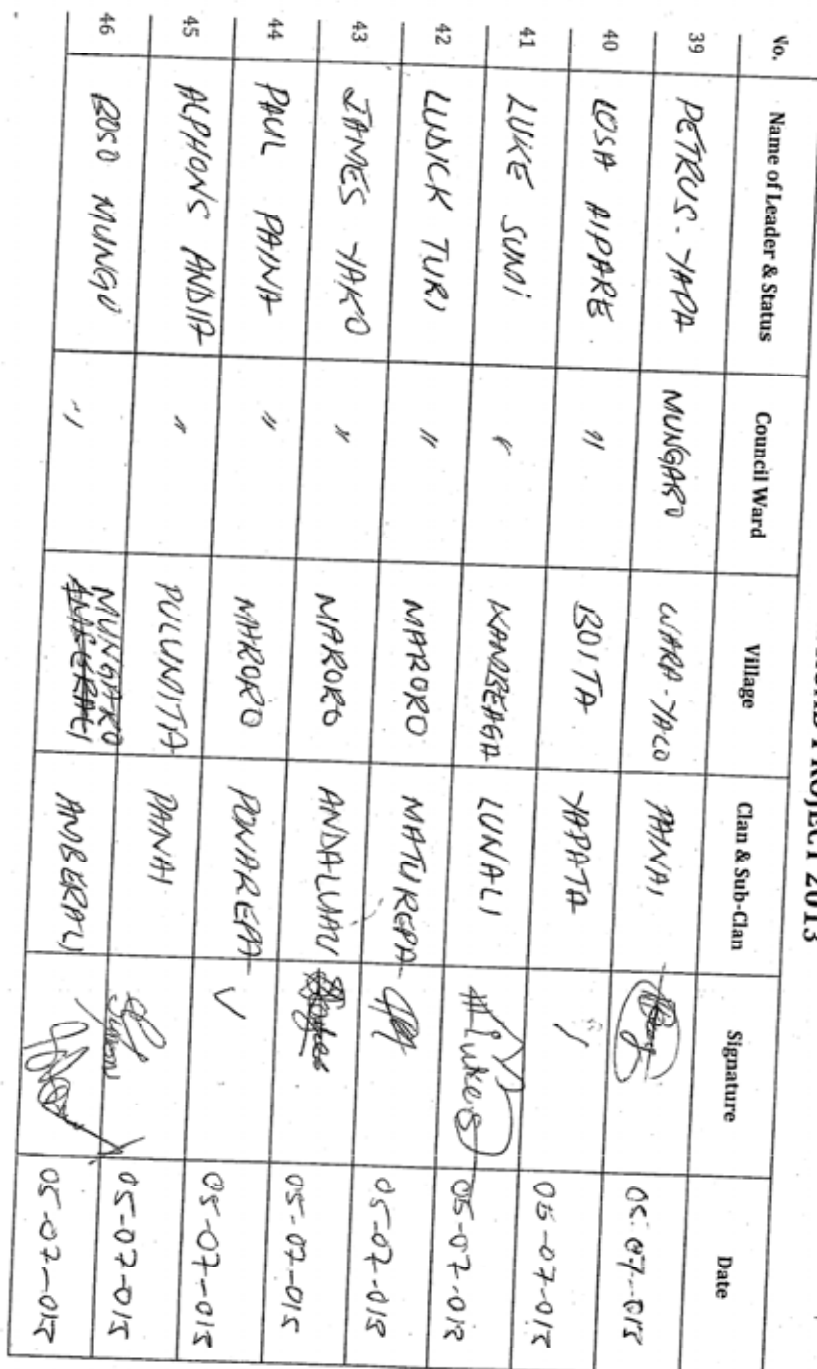 PROJECT 2013
No. Name of Leader & Status Council Ward Village Clan & Sub-Clan Signature Date
39 PETRUS-YAPA MUNGARO WARA-YALO PAINAI 05-07-015
40 LOSA AIPARE. " BOITA. YAPATA / 05-07-015
41 LUKE SUMI " KAMBEAGA LUNALI Luke S 05-07-015
42 LUDICK TURI " MARORO MATUREPA- 05-07-015
43 JAMES YAKO " MARORO ANDALUAU 05-07-015
44 PAUL PAINA " MARORO PONAREPA- ✓ 05-07-015
45 ALPHONS ANDIA " PULUMITIA PAINAI 05-07-015
46 BOSO MUNGO " MUNGARO AMBERALI 05-07-015
AMBERALI